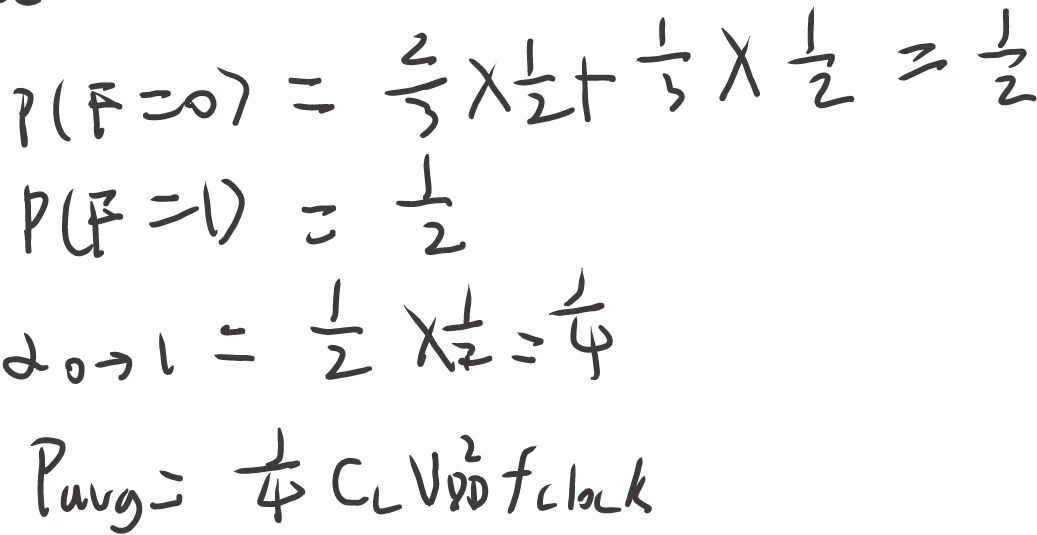 P(F=0) = 2/3 × 1/2 + 1/3 × 1/2 = 1/2
P(F=1) = 1/2
α0→1 = 1/2 × 1/2 = 1/4
Pavg = 1/4 CL VDD² fclock